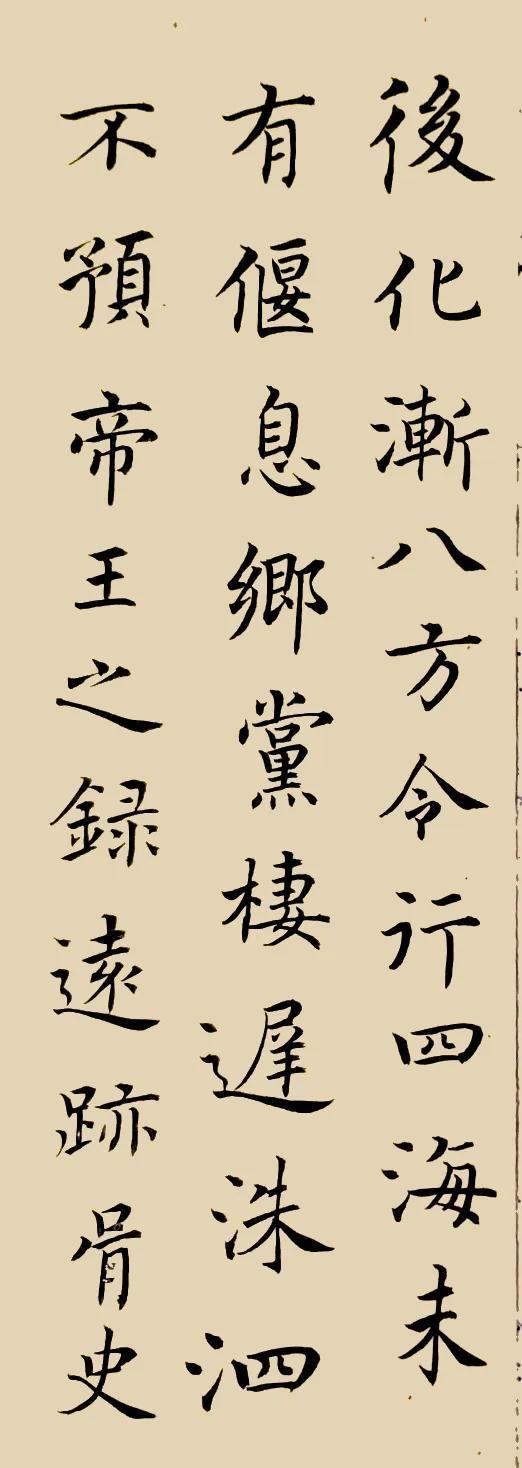 後化漸八方令行四海未
有偃息鄉黨棲遲洙泗
不預帝王之録遠跡胥史